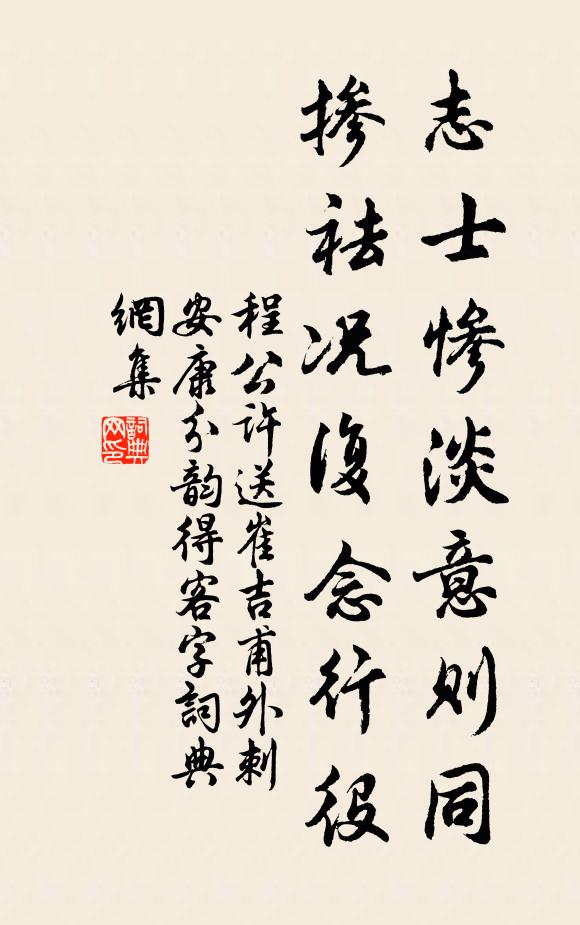 志士惨淡意则同
掺祛况复念行役
程公许送崔吉甫外刺
安康分韵得客字詞典
網集
詞典
网印